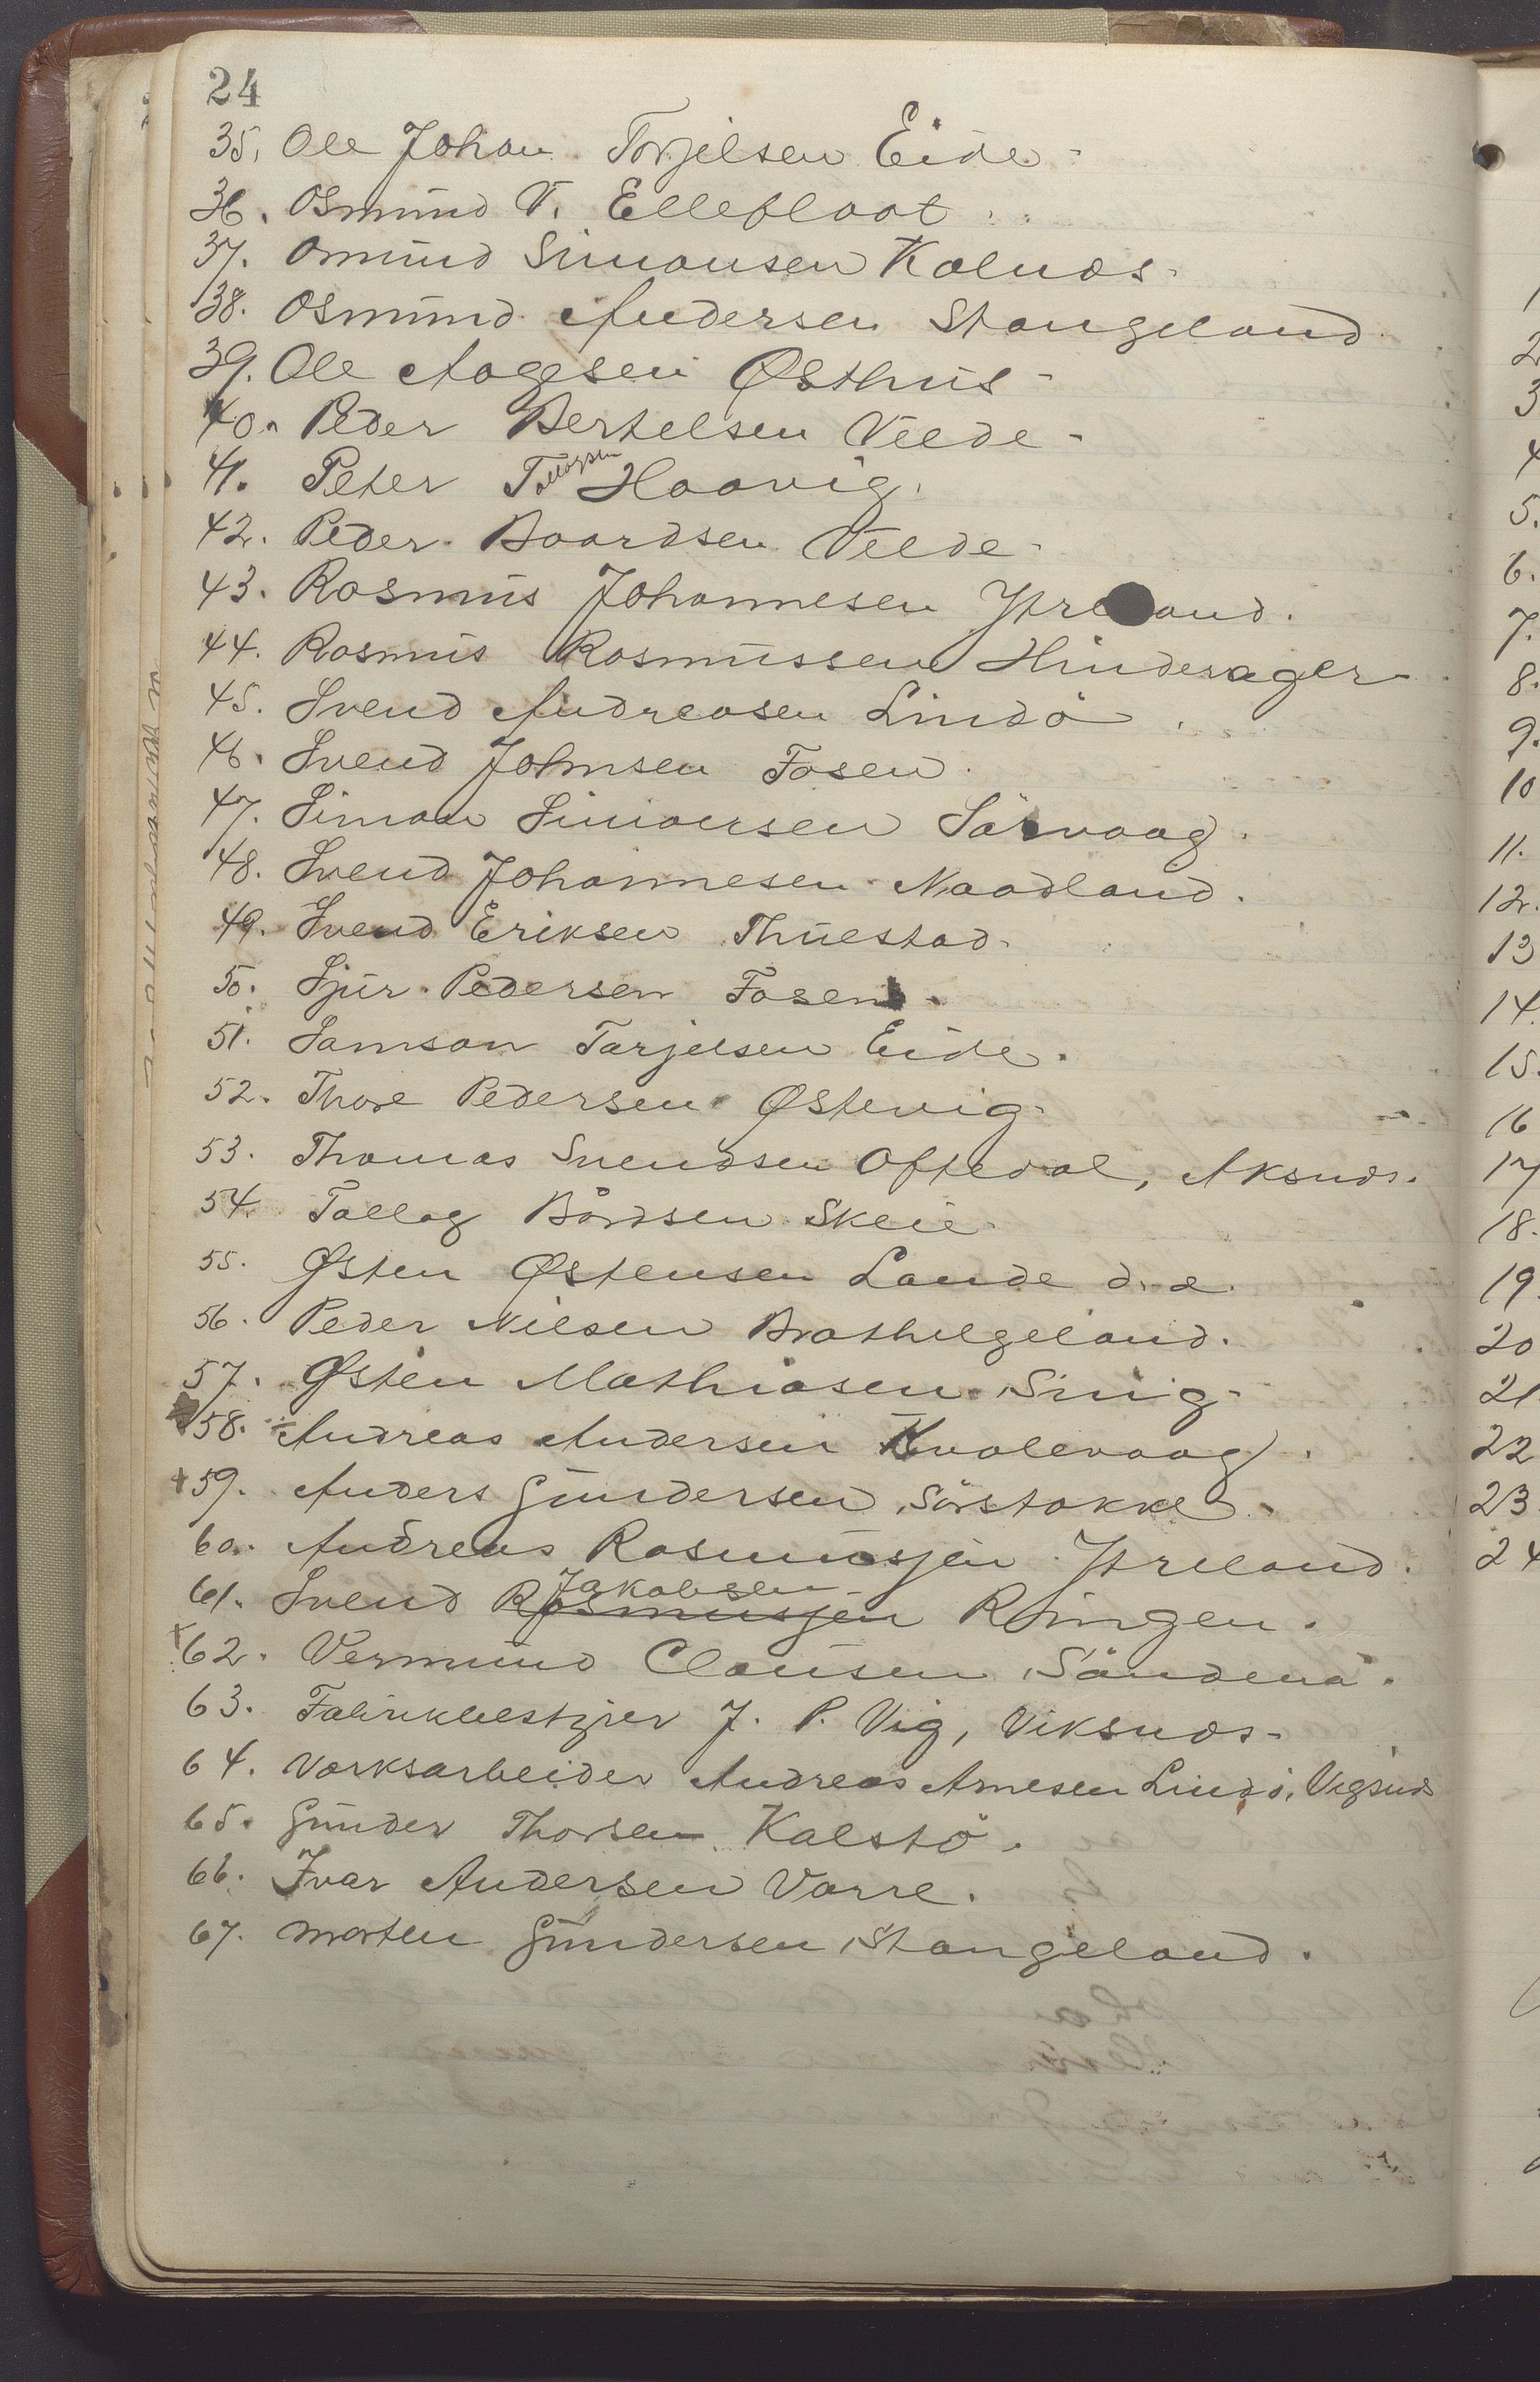 24
35. Ole Johan Torjelsen Eide
36. Osmund V. Elleflaat
37. Omund Simonsen Kolnæs
38. Osmund Andersen Stangeland
39. Ole Aagesen Østhus
40. Peder Bertelsen Veede
41. Peter Tollagsen Haavig.
42. Peder Baardsen Veede
43. Rasmus Johannesen Ytreland.
44. Rasmus Rasmussen Hinderager
45. Svend Andreasen Lindö
46. Svend Johnsen Fosen
47. Simon Simonsen Sörvaag.
48. Svend Johannesen Naadland.
49. Svend Eriksen Thuestad
50. Sjur Pedersen Fosen.
51. Samson Tarjelsen Eide.
52. Thore Pedersen Østevig
53. Thomas Svendsen Oftedal, Aksnæs.
54. Tallag Bårdsen Skeie
55. Østen Østensen Lande d.æ.
56. Peder Nilsen Brathelgeland.
57. Østen Mathiasen Snig
58. Andreas Andersen Kvalevaag.
+ 59. Anders Gundersen Sörstokke
60. Andreas Rasmussen Ytreland.
61. Svend Rasmussen Jakobsen Ringen.
+ 62. Vermund Clausen Sändenå.
63. Fabrikbestyrer J. P. Vig, Viksnæs
64. Værksarbeider Andreas Arnesen Lindö, Vigsnæs
65. Gunder Thorsen Kalstö.
66. Ivar Andersen Vorre.
67. Morten Gundersen Stangeland.
2
3
4
5.
6.
7.
8.
9.
10
11.
12.
13
14.
15.
16
17
18.
19.
20
21
22
23.
24